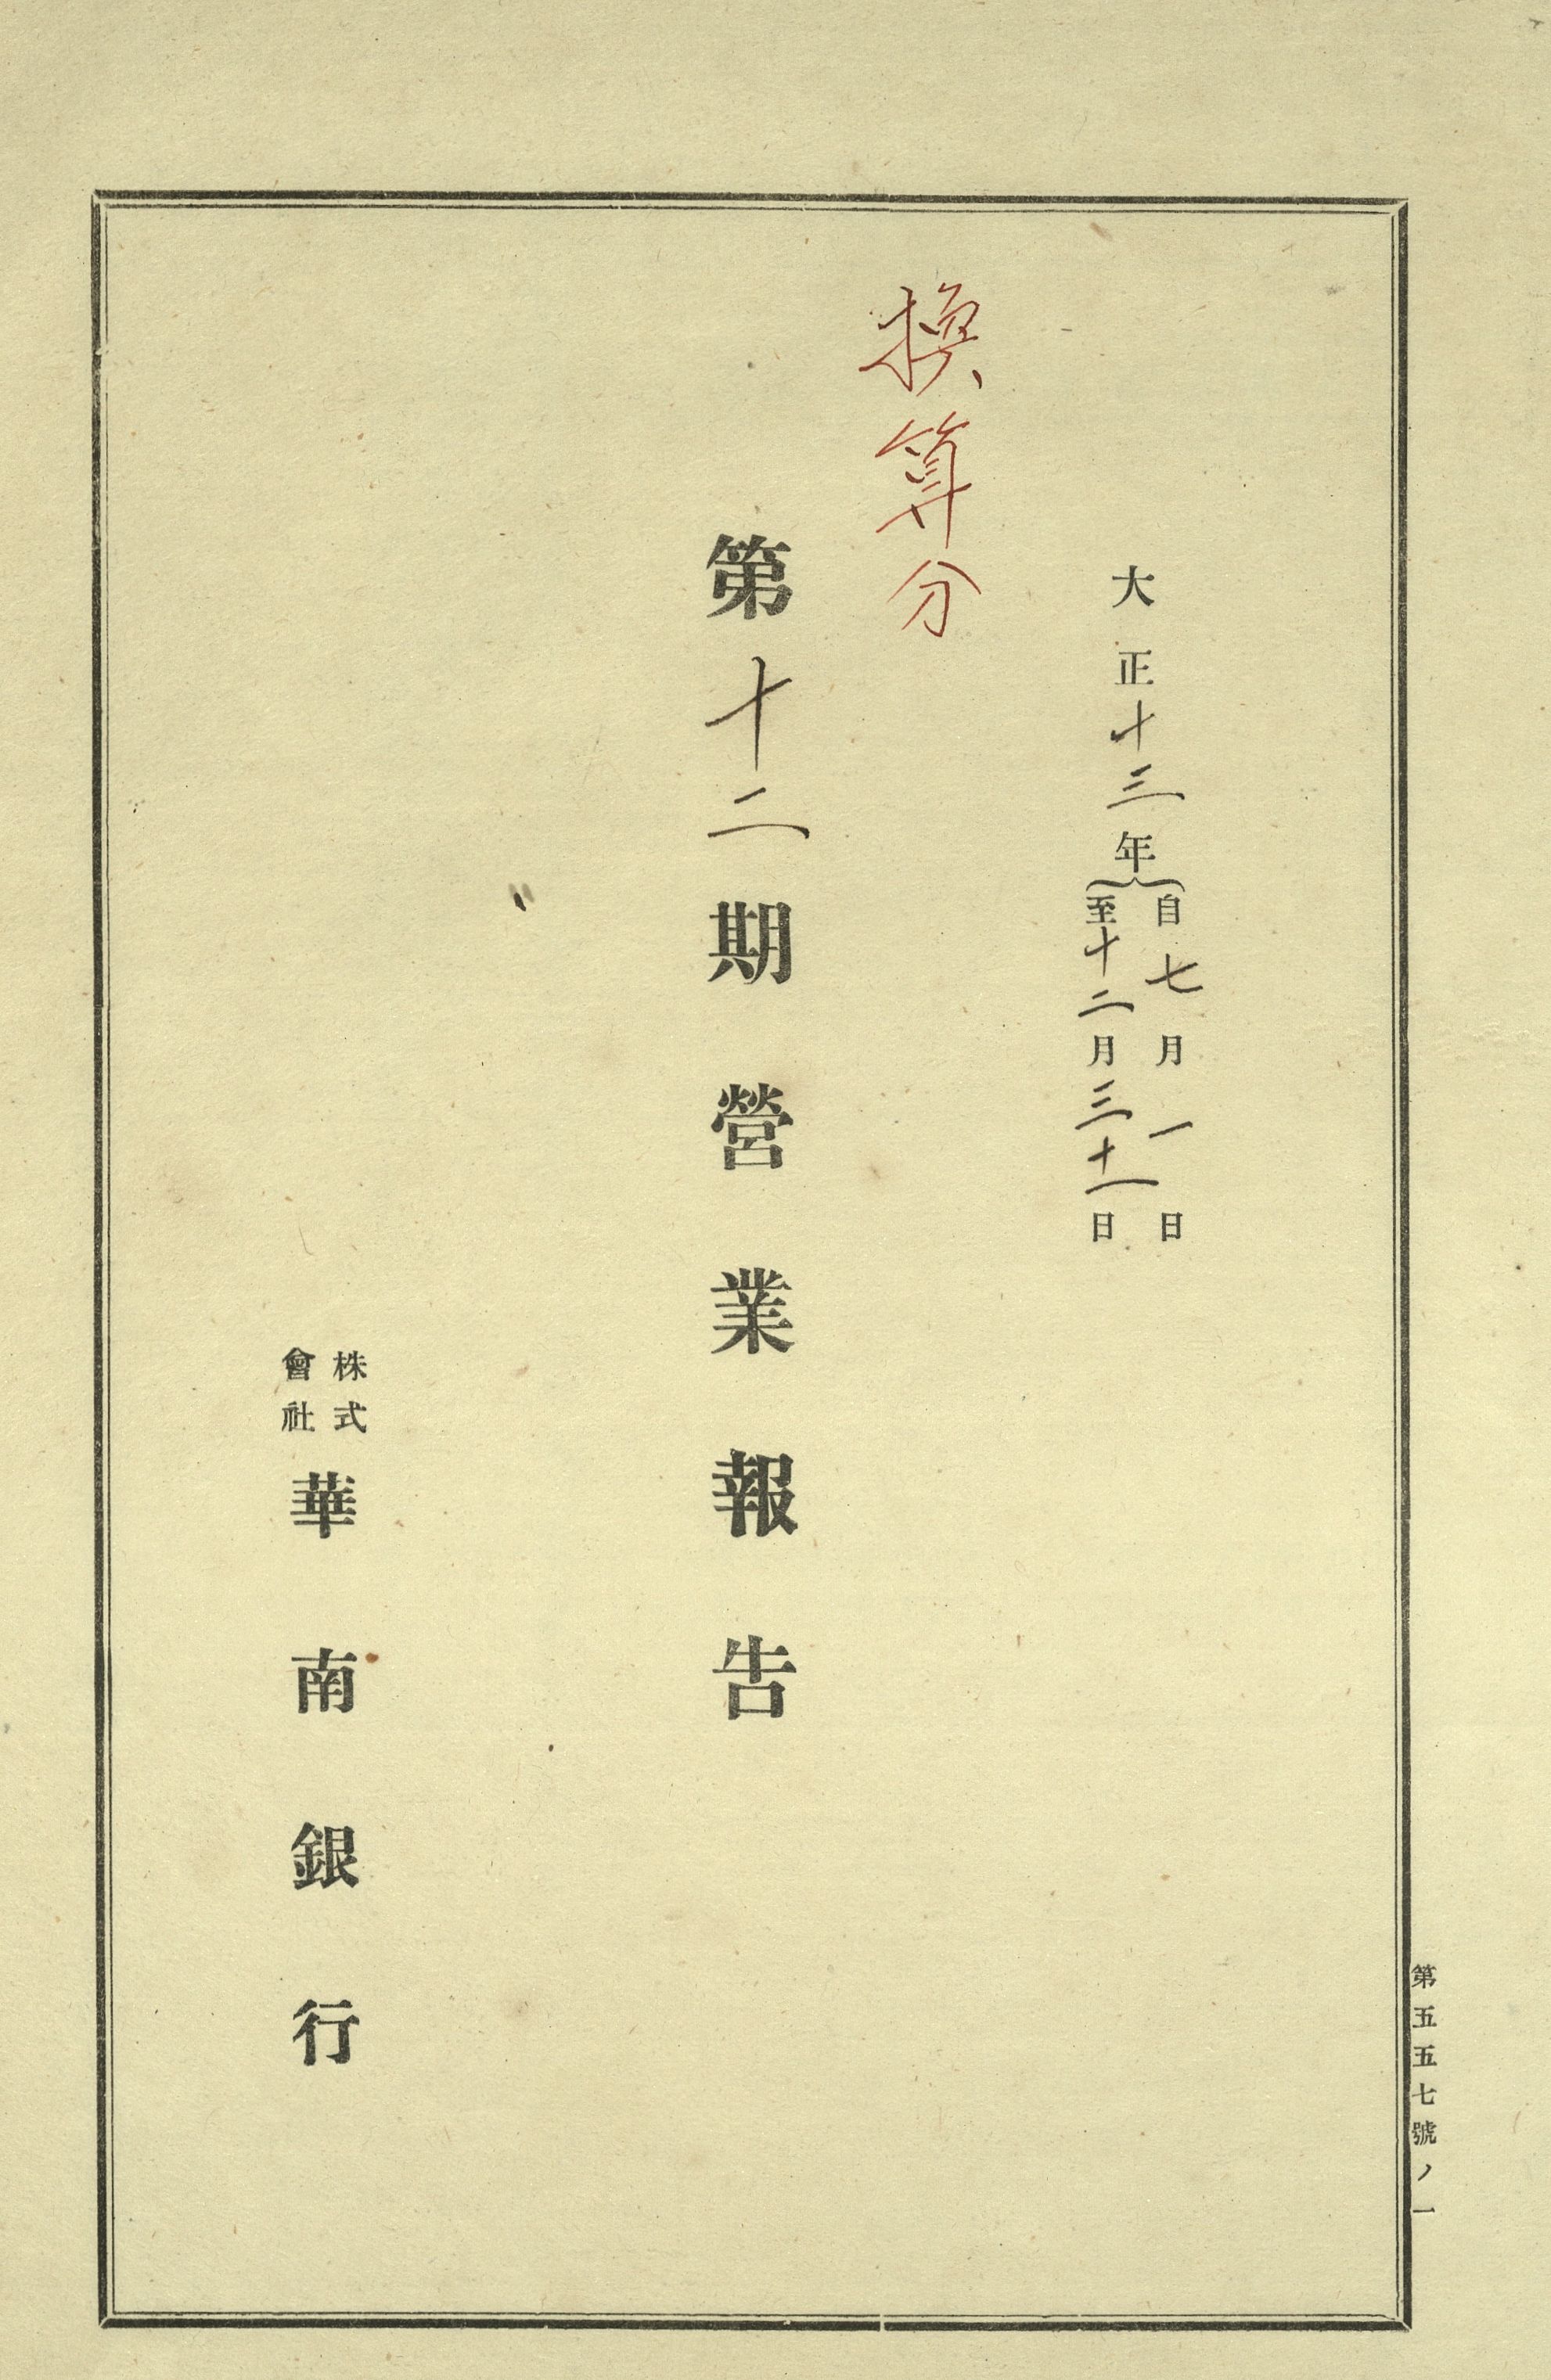 大正十三年
自七月一日
至十二月三十一日
換算分
第十二期營業報告
株式
會社
華南銀行
第五五七號ノ一